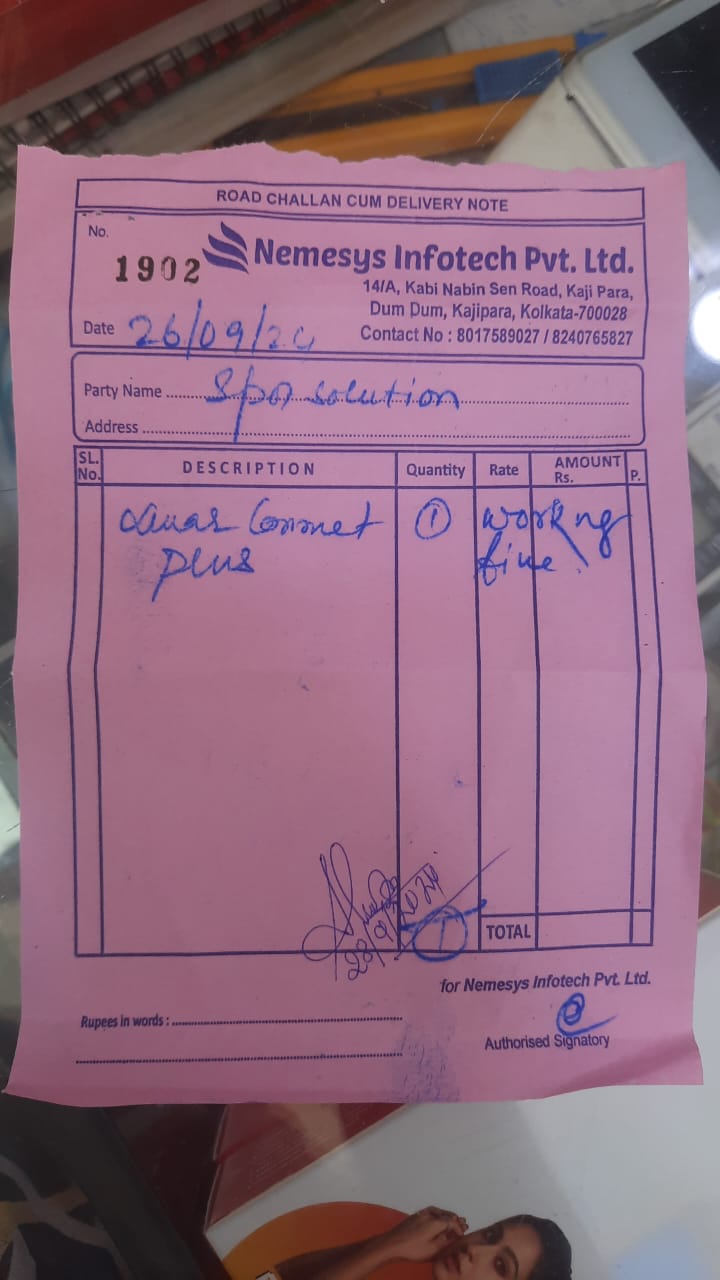 ROAD CHALLAN CUM DELIVERY NOTE
No.
1902
Nemesys Infotech Pvt. Ltd.
14/A, Kabi Nabin Sen Road, Kaji Para,
Dum Dum, Kajipara, Kolkata-700028
Contact No : 8017589027 / 8240765827
Date 26/09/24
Party Name solution
Address
SL. No. DESCRIPTION Quantity Rate AMOUNT Rs. P.
1 working
Plus fine
1 TOTAL
for Nemesys Infotech Pvt. Ltd.
Rupees in words :
Authorised Signatory